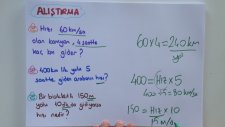 ALIŞTIRMA
Hızı 60 km/sa
olan kamyon, 4 saatte
kaç km gider?
60x4=240km
yol
400km lik yolu 5
saatte giden arabanın hızı?
400=Hız x 5
400÷5=80km/sa
Bir bisikletli 150m
yolu 10 da gidiyorsa
hızı nedir?
150=Hız x 10
15m/